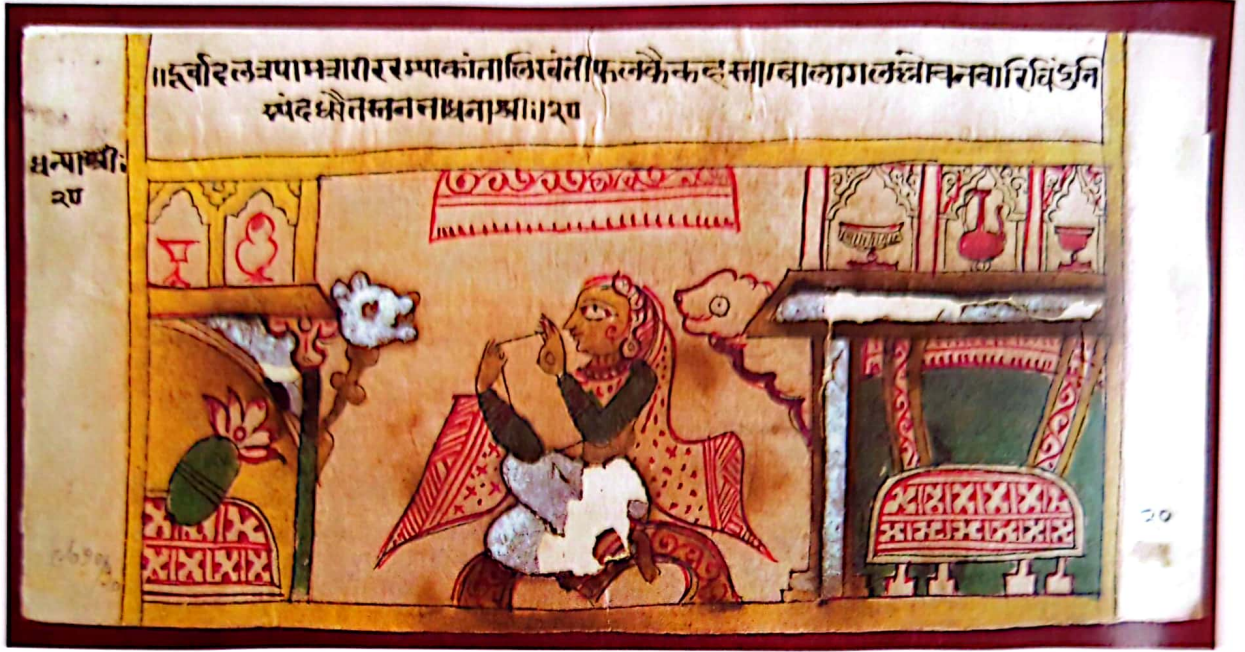 ॥दूर्वादलश्यामशरीररम्याकांतालिखंतीफलकैकहस्ता॥बालागलल्लोचनवारिबिंदुनि
स्यंदधौतस्तननाधनाश्रीः॥२०
धन्याश्रीः
२०
२०